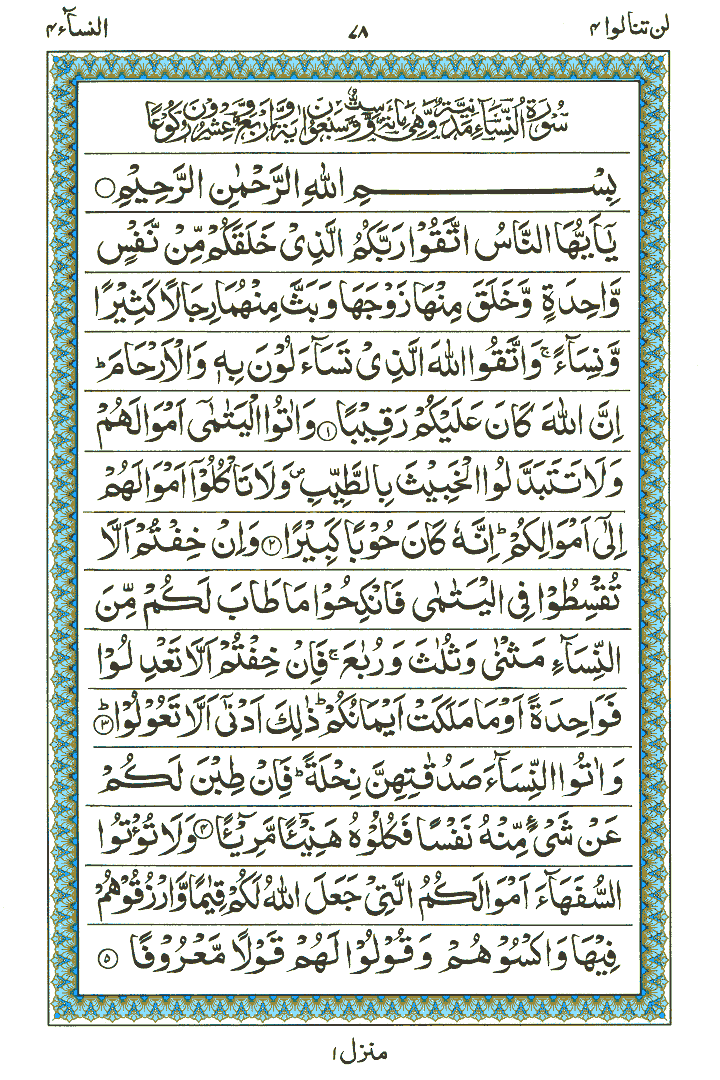 لن تنالوا ۴
۷۸
النسآء ۴
سُوْرَةُ النِّسَآءِ مَدَنِيَّةٌ وَّهِيَ مِائَةٌ وَّسِتٌّ وَّسَبْعُوْنَ اٰيَةً وَّاَرْبَعٌ وَّعِشْرُوْنَ رُكُوْعًا
بِسْمِ اللهِ الرَّحْمٰنِ الرَّحِيْمِ ○
يٰۤاَيُّهَا النَّاسُ اتَّقُوْا رَبَّكُمُ الَّذِىْ خَلَقَكُمْ مِّنْ نَّفْسٍ
وَّاحِدَةٍ وَّخَلَقَ مِنْهَا زَوْجَهَا وَبَثَّ مِنْهُمَا رِجَالًا كَثِيْرًا
وَّنِسَآءً ۚ وَاتَّقُوا اللهَ الَّذِىْ تَسَآءَلُوْنَ بِهٖ وَالْاَرْحَامَ ؕ
اِنَّ اللهَ كَانَ عَلَيْكُمْ رَقِيْبًا ﴿۱﴾ وَاٰتُوا الْيَتٰمٰٓى اَمْوَالَهُمْ
وَلَا تَتَبَدَّلُوا الْخَبِيْثَ بِالطَّيِّبِ ۪ وَلَا تَاْكُلُوْۤا اَمْوَالَهُمْ
اِلٰٓى اَمْوَالِكُمْ ؕ اِنَّهٗ كَانَ حُوْبًا كَبِيْرًا ﴿۲﴾ وَاِنْ خِفْتُمْ اَلَّا
تُقْسِطُوْا فِى الْيَتٰمٰى فَانْكِحُوْا مَا طَابَ لَكُمْ مِّنَ
النِّسَآءِ مَثْنٰى وَثُلٰثَ وَرُبٰعَ ۚ فَاِنْ خِفْتُمْ اَلَّا تَعْدِلُوْا
فَوَاحِدَةً اَوْ مَا مَلَكَتْ اَيْمَانُكُمْ ؕ ذٰلِكَ اَدْنٰٓى اَلَّا تَعُوْلُوْا ؕ﴿۳﴾
وَاٰتُوا النِّسَآءَ صَدُقٰتِهِنَّ نِحْلَةً ؕ فَاِنْ طِبْنَ لَكُمْ
عَنْ شَىْءٍ مِّنْهُ نَفْسًا فَكُلُوْهُ هَنِيْٓـئًا مَّرِيْٓـئًا ﴿۴﴾ وَلَا تُؤْتُوا
السُّفَهَآءَ اَمْوَالَكُمُ الَّتِىْ جَعَلَ اللهُ لَكُمْ قِيٰمًا وَّارْزُقُوْهُمْ
فِيْهَا وَاكْسُوْهُمْ وَقُوْلُوْا لَهُمْ قَوْلًا مَّعْرُوْفًا ﴿۵﴾
منزل ۱